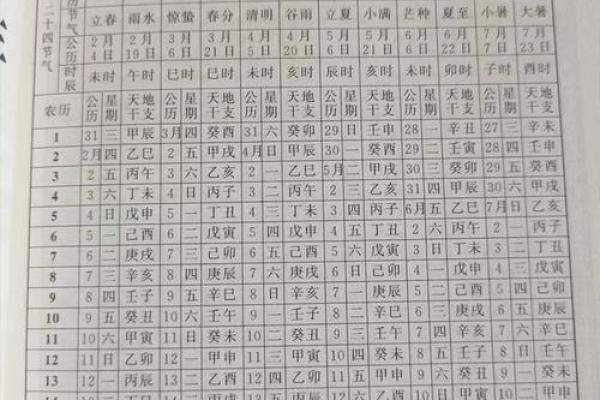 二十四节气
历节气 立春 雨水 惊蛰 春分 清明 谷雨 立夏 小满 芒种 夏至 小暑 大暑
公历 2月 2月 3月 3月 4月 4月 5月 5月 6月 6月 7月 7月
4日 19日 6日 21日 5日 20日 6日 21日 6日 22日 7日 23日
时辰 未时 午时 巳时 巳时 未时 亥时 辰时 亥时 未时 卯时 子时 酉时
农历 公历 星期 天地干支 公历 星期 天地干支 公历 星期 天地干支 公历 星期 天地干支 公历 星期 天地干支 公历 星期 天地干支
1 31 三 甲辰 3月 四 癸酉 31 六 癸卯 29 日 壬申 28 一 辛丑 27 三 辛未
2 2月 四 乙巳 2 五 甲戌 4月 日 甲辰 30 一 癸酉 29 二 壬寅 28 四 壬申
3 2 五 丙午 3 六 乙亥 2 一 乙巳 5月 二 甲戌 30 三 癸卯 29 五 癸酉
4 3 六 丁未 4 日 丙子 3 二 丙午 2 三 乙亥 31 四 甲辰 30 六 甲戌
5 4 日 戊申 5 一 丁丑 4 三 丁未 3 四 丙子 6月 五 乙巳 7月 日 乙亥
6 5 一 己酉 6 二 戊寅 5 四 戊申 4 五 丁丑 2 六 丙午 2 一 丙子
7 6 二 庚戌 7 三 己卯 6 五 己酉 5 六 戊寅 3 日 丁未 3 二 丁丑
8 7 三 辛亥 8 四 庚辰 7 六 庚戌 6 日 己卯 4 一 戊申 4 三 戊寅
9 8 四 壬子 9 五 辛巳 8 日 辛亥 7 一 庚辰 5 二 己酉 5 四 己卯
10 9 五 癸丑 10 六 壬午 9 一 壬子 8 二 辛巳 6 三 庚戌 6 五 庚辰
11 10 六 甲寅 11 日 癸未 10 二 癸丑 9 三 壬午 7 四 辛亥 7 六 辛巳
12 11 日 乙卯 12 一 甲申 11 三 甲寅 10 四 癸未 8 五 壬子 8 日 壬午
13 12 一 丙辰 13 二 乙酉 12 四 乙卯 11 五 甲申 9 六 癸丑 9 一 癸未